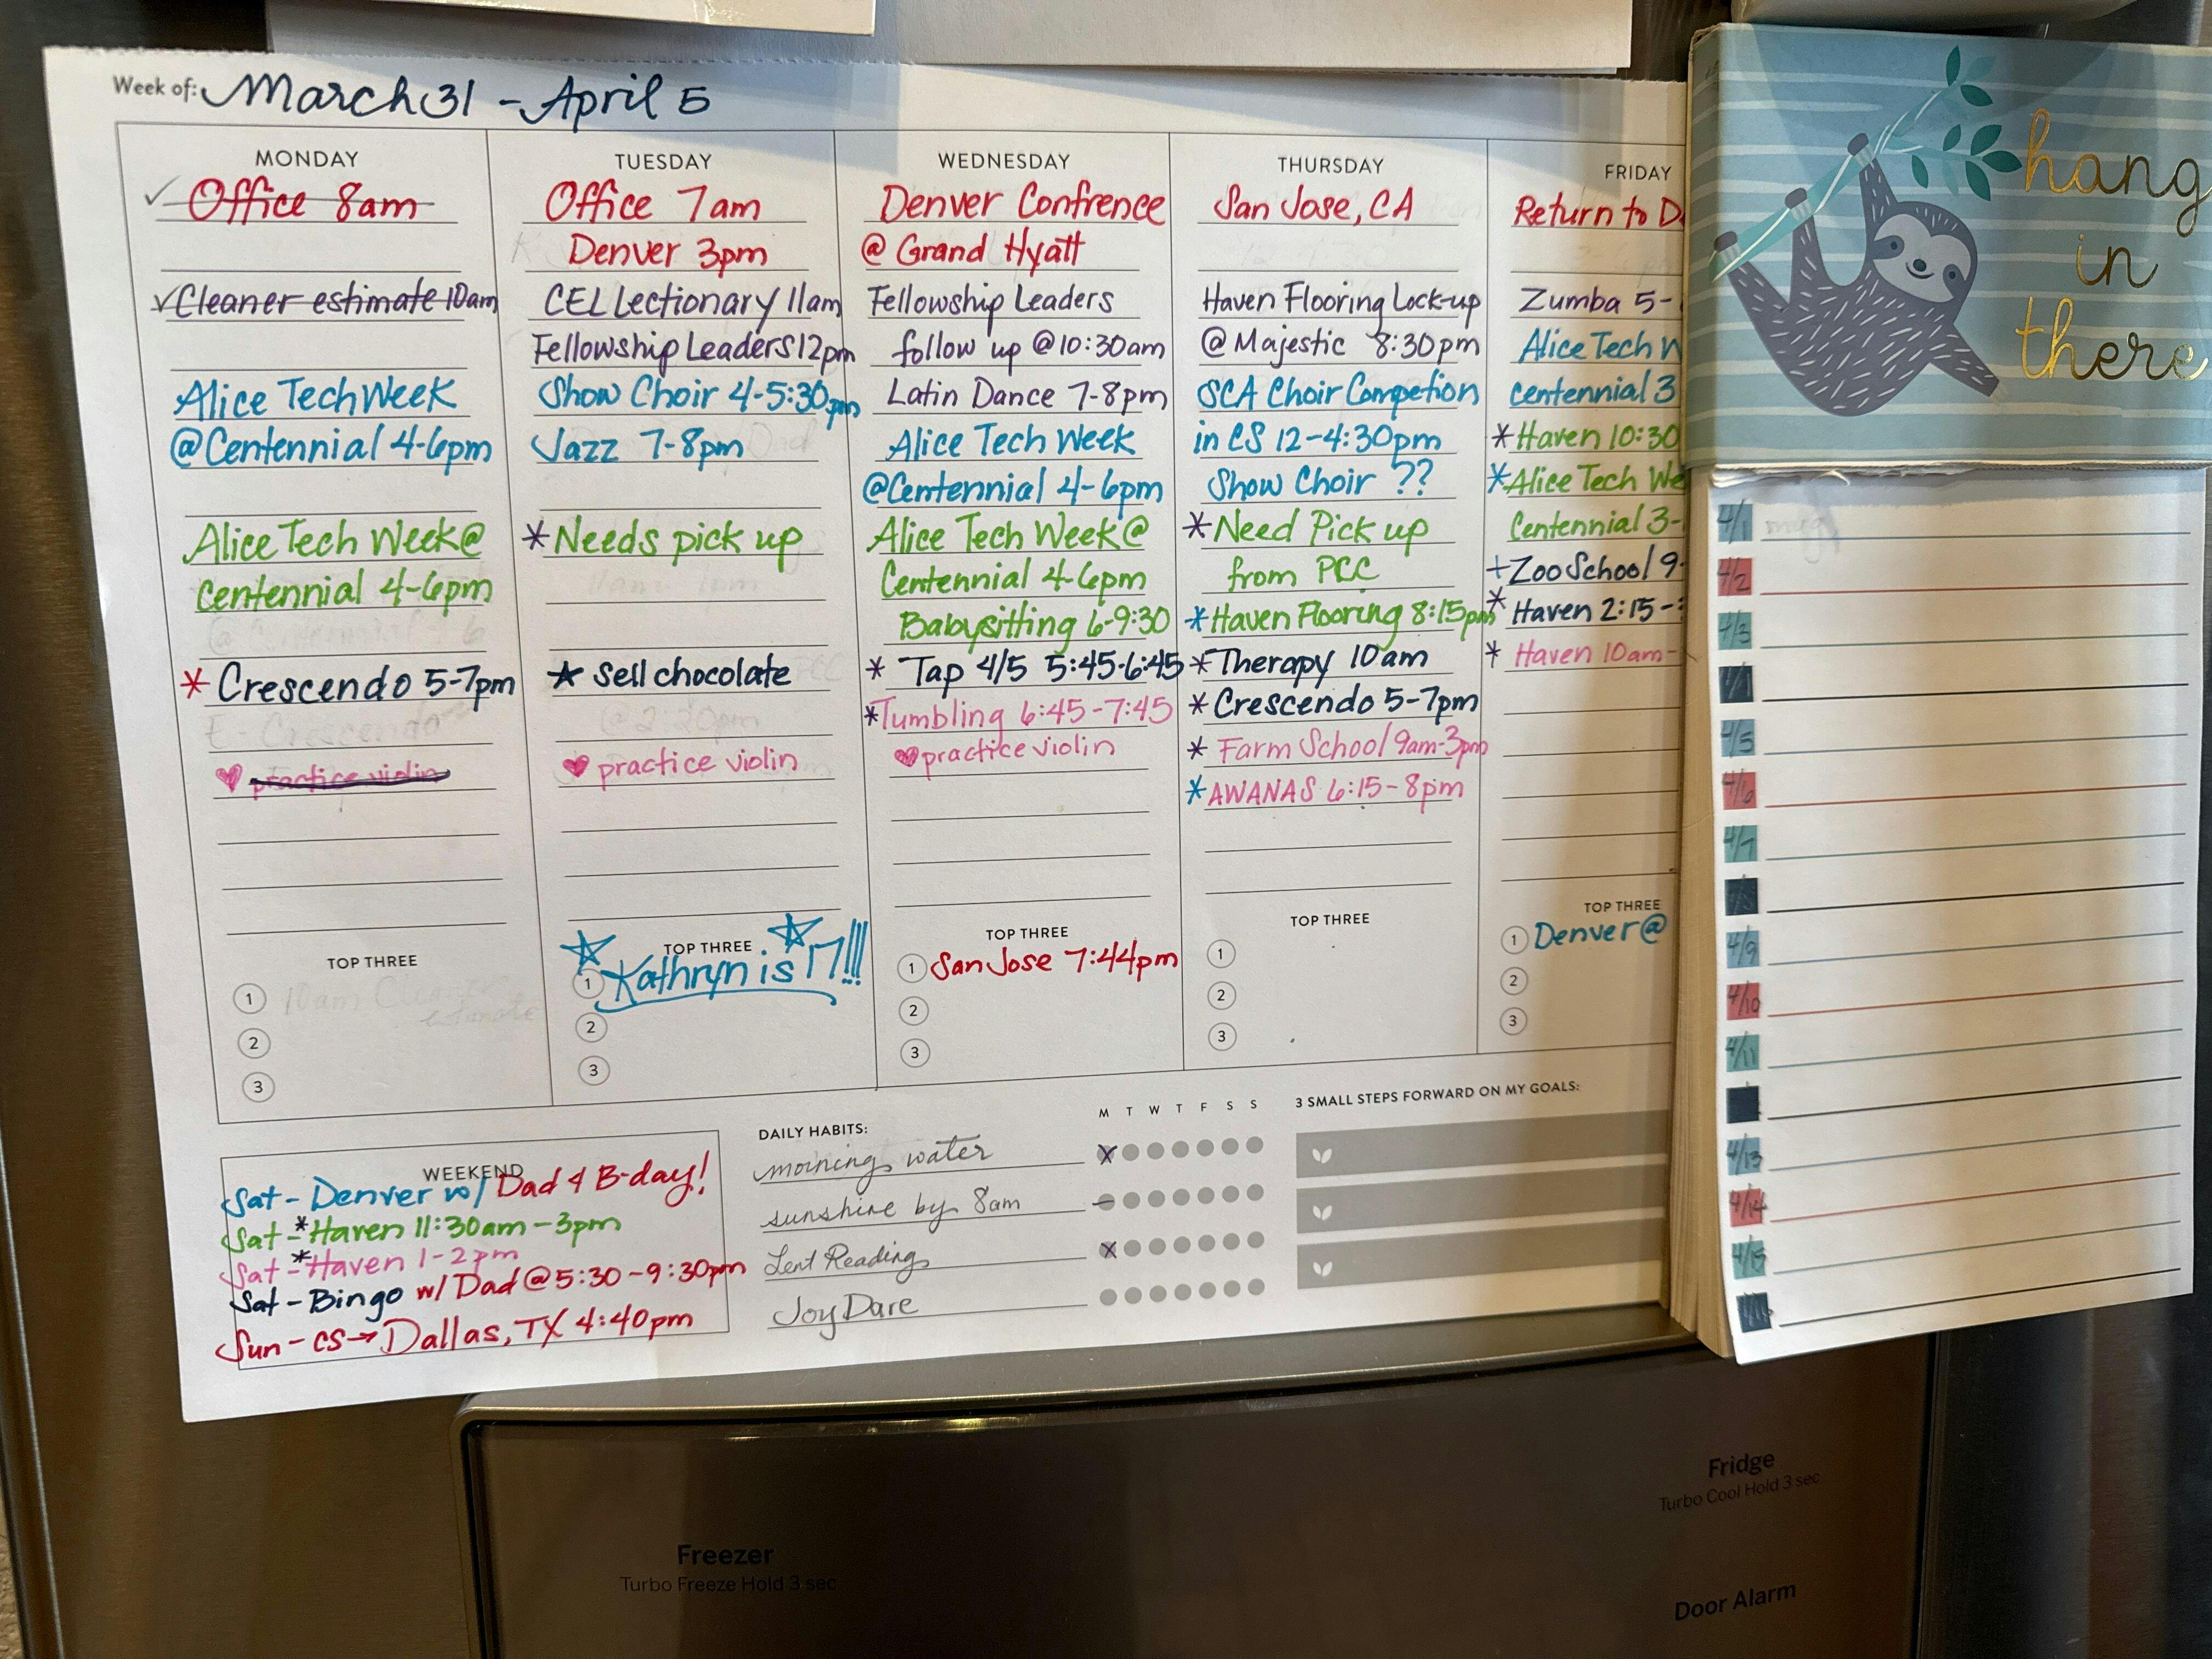 Week of: March 31 - April 5
MONDAY
Office 8am
Cleaner estimate 10am
Alice Tech Week
@Centennial 4-6pm
Alice Tech Week@
Centennial 4-6pm
* Crescendo 5-7pm
practice violin
TOP THREE
1
2
3
TUESDAY
Office 7am
Denver 3pm
CEL Lectionary 11am
Fellowship Leaders 12pm
Show Choir 4-5:30pm
Jazz 7-8pm
*Needs pick up
* sell chocolate
practice violin
TOP THREE
1 Kathryn is 17!!!
2
3
WEDNESDAY
Denver Confrence
@ Grand Hyatt
Fellowship Leaders
follow up @10:30am
Latin Dance 7-8pm
Alice Tech Week
@Centennial 4-6pm
Alice Tech Week@
Centennial 4-6pm
Babysitting 6-9:30
* Tap 4/5 5:45-6:45
*Tumbling 6:45-7:45
practice violin
TOP THREE
1 San Jose 7:44pm
2
3
THURSDAY
San Jose, CA
Haven Flooring Lock-up
@ Majestic 8:30pm
SCA Choir Competion
in CS 12-4:30pm
Show Choir ??
*Need Pick up
from PCC
*Haven Flooring 8:15pm
*Therapy 10am
* Crescendo 5-7pm
* Farm School 9am-3pm
*AWANAS 6:15-8pm
TOP THREE
1
2
3
FRIDAY
Return to D
Zumba 5-
Alice Tech W
Centennial 3
*Haven 10:30
*Alice Tech We
Centennial 3-
+Zoo School 9-
* Haven 2:15-
* Haven 10am-
TOP THREE
1 Denver@
2
3
WEEKEND
Sat - Denver w/ Dad 4 B-day!
Sat - *Haven 11:30am-3pm
Sat - *Haven 1-2pm
Sat - Bingo w/ Dad @ 5:30-9:30pm
Sun - CS→Dallas, TX 4:40pm
DAILY HABITS:
M T W T F S S
morning water
sunshine by 8am
Lent Reading
Joy Dare
3 SMALL STEPS FORWARD ON MY GOALS:
hang
in
there
4/1
4/2
4/3
4/5
4/6
4/7
4/9
4/10
4/11
4/13
4/14
4/15
Freezer
Turbo Freeze Hold 3 sec
Fridge
Turbo Cool Hold 3 sec
Door Alarm